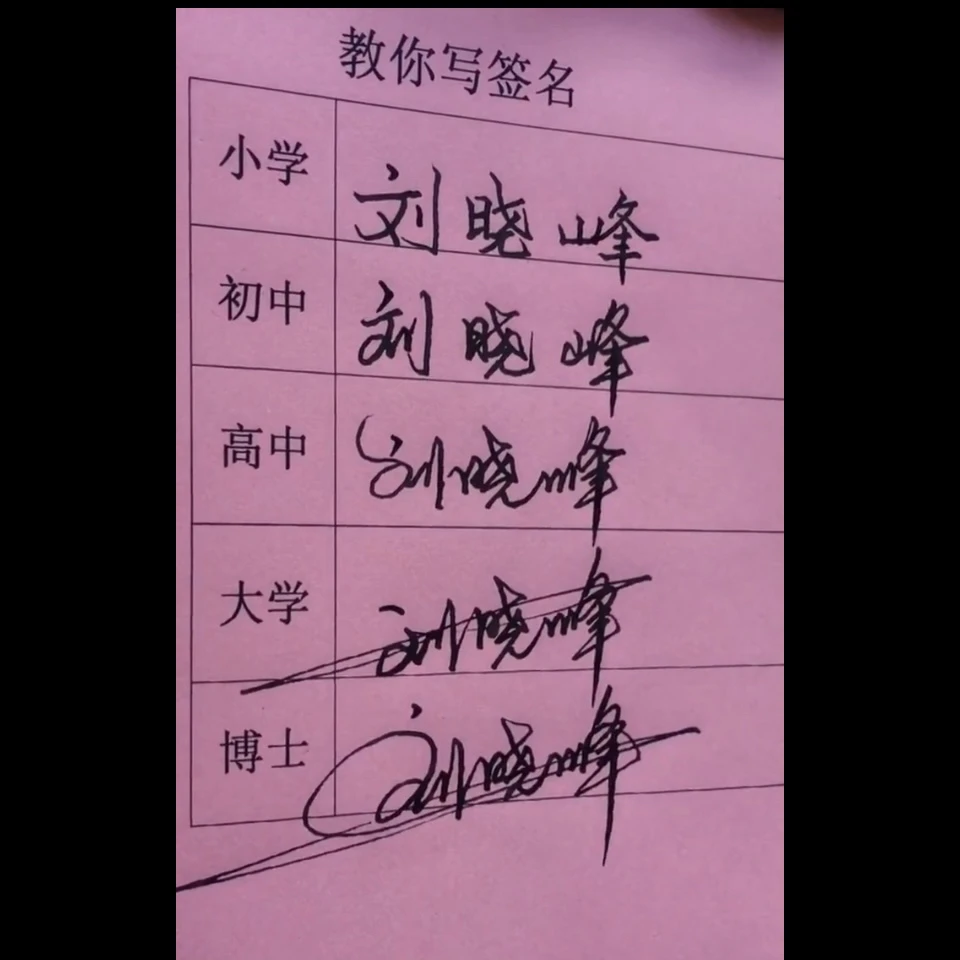 教你写签名
小学 刘晓峰
初中 刘晓峰
高中 刘晓峰
大学 刘晓峰
博士 刘晓峰